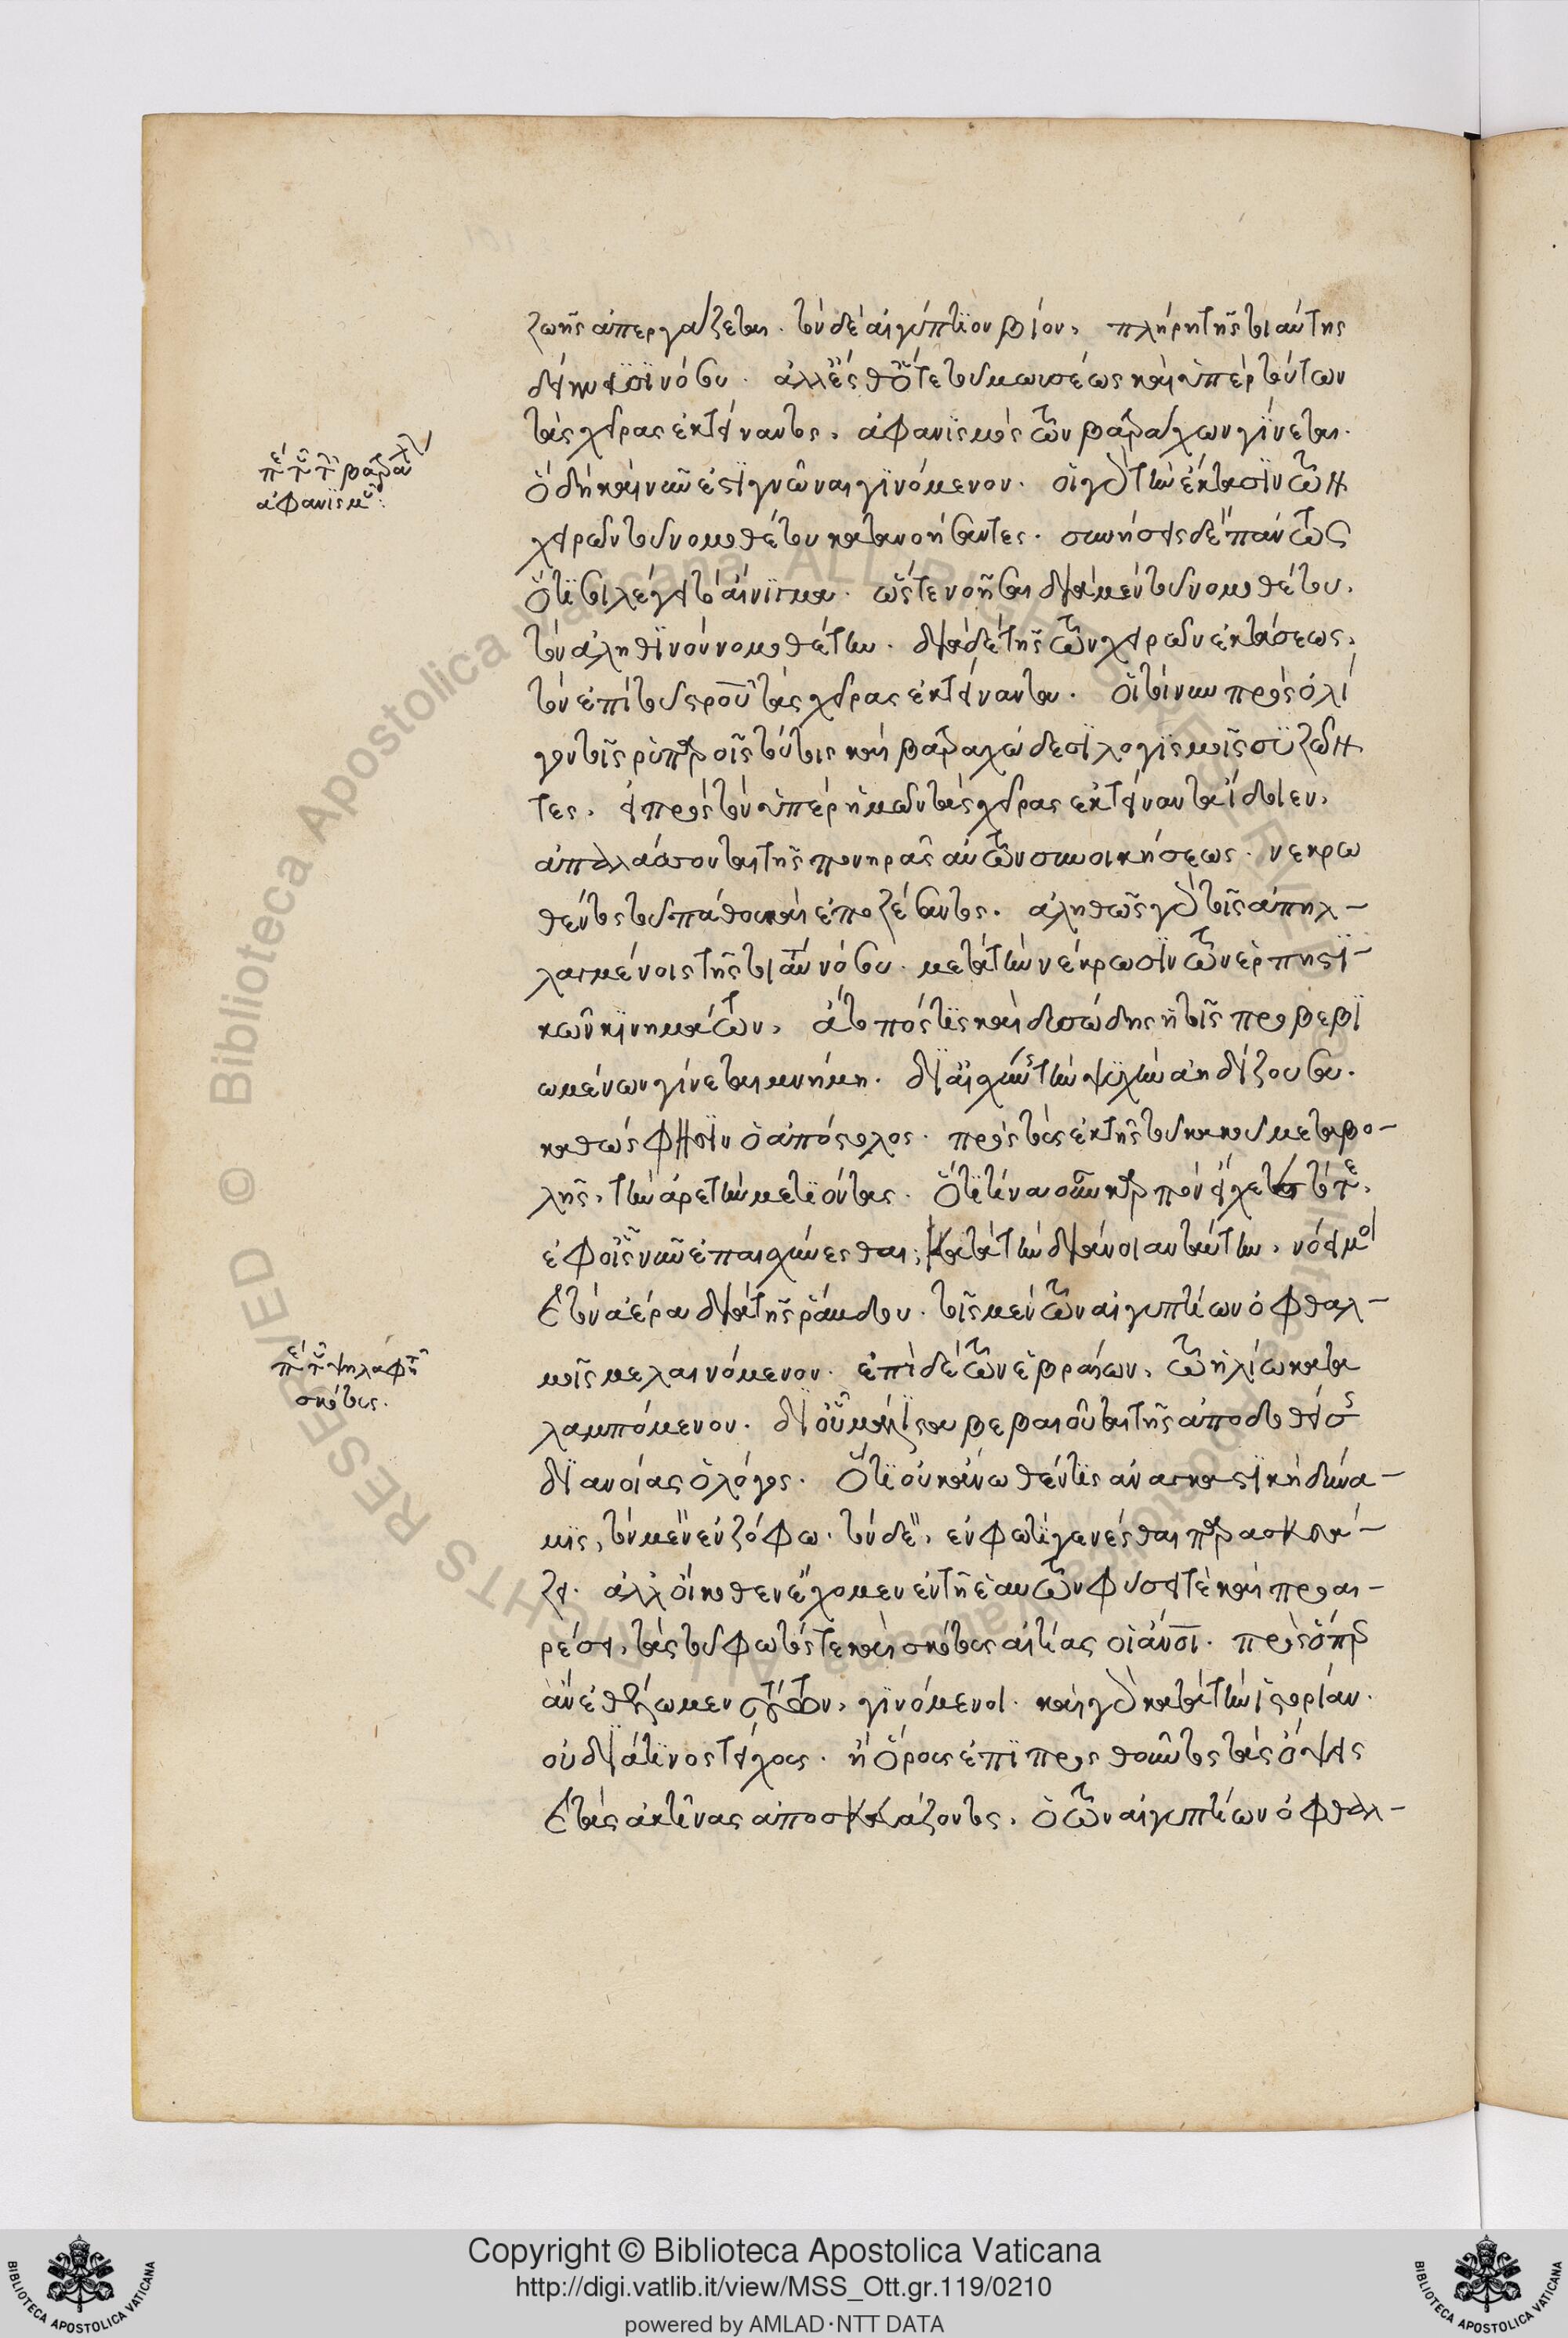 ζωῆς ἀπεργάζεται. τὸν δὲ αἰγύπτιον βίον, πλήρη τῆς τοιαύτης
δείκνυσι νόσου. ἀλλ' ἔσθ' ὅτε τοῦ μωϋσέως καὶ ὑπὲρ τούτων
τὰς χεῖρας ἐκτείναντος, ἀφανισμὸς τῶν βατράχων γίνεται.
ὃ δὴ καὶ νῦν ἐστι γνῶναι γινόμενον. οἱ γὰρ τὴν ἔκτασιν τῶν
χειρῶν τοῦ νομοθέτου κατανοήσαντες. συνήσεις δὲ πάντως
ὅ τί σοι λέγει τὸ αἴνιγμα. ὥστε νοῆσαι διὰ μὲν τοῦ νομοθέτου,
τὸν ἀληθινὸν νομοθέτην. διὰ δὲ τῆς τῶν χειρῶν ἐκτάσεως,
τὸν ἐπὶ τοῦ σταυροῦ τὰς χεῖρας ἐκτείναντα. οἱ τοίνυν πρὸς ὀλί
γον τοῖς ῥυπαροῖς τούτοις καὶ βατραχώδεσι λογισμοῖς συζῶν
τες, εἰ πρὸς τὸν ὑπὲρ ἡμῶν τὰς χεῖρας ἐκτείναντα ἴδοιεν,
ἀπαλλάσσονται τῆς πονηρᾶς αὐτῶν συνοικήσεως. νεκρω
θέντος τοῦ πάθους καὶ ἐποζέσαντος. ἀληθῶς γὰρ τοῖς ἀπηλ-
λαγμένοις τῆς τοιαύτης νόσου. μετὰ τὴν νέκρωσιν τῶν ἑρπηστι-
κῶν κινημάτων, ἄτοπός τις καὶ δυσώδης ἡ τοῖς προβεβι
ωμένων γίνεται μνήμη. δι' αἰσχύνης τὴν ψυχὴν ἀηδίζουσα.
καθώς φησιν ὁ ἀπόστολος. πρὸς τοὺς ἐκ τῆς τοῦ κακοῦ μεταβο-
λῆς, τὴν ἀρετὴν μετιόντας. ὅτι τίνα οὖν καρπὸν εἴχετε τότε,
ἐφ' οἷς νῦν ἐπαισχύνεσθαι; κατὰ τὴν διάνοιαν ταύτην, νόει μοι
καὶ τὸν ἀέρα διὰ τῆς ῥάβδου. τοῖς μὲν τῶν αἰγυπτίων ὀφθαλ-
μοῖς μελαινόμενον. ἐπὶ δὲ τῶν ἑβραίων, τῷ ἡλίῳ κατα
λαμπόμενον. δι' οὗ μάλιστα βεβαιοῦται τῆς ἀποδοθείσης
διανοίας ὁ λόγος. ὅτι οὐκ ἄνωθέν τις ἀναγκαστικὴ δύνα-
μις, τὸν μὲν ἐν ζόφῳ. τὸν δὲ, ἐν φωτὶ γενέσθαι παρασκευά-
ζει. ἀλλ' οἴκοθεν ἔχομεν ἐν τῇ ἑαυτῶν φύσει τε καὶ προαι-
ρέσει, τὰς τοῦ φωτός τε καὶ σκότους αἰτίας οἱ ἄνθρωποι. πρὸς ὅπερ
ἂν ἐθέλωμεν τούτου, γινόμενοι. καὶ γὰρ κατὰ τὴν ἱστορίαν.
οὐ διά τινος τείχους. ἢ ὄρους ἐπιπροσθοῦντος τὰς ὄψεις
καὶ τὰς ἀκτῖνας ἀποσκιάζοντος, ὁ τῶν αἰγυπτίων ὀφθαλ-
περὶ τοῦ τῶν βατράχων
ἀφανισμοῦ:
περὶ τοῦ ψηλαφητοῦ
σκότους.
Copyright © Biblioteca Apostolica Vaticana
http://digi.vatlib.it/view/MSS_Ott.gr.119/0210
powered by AMLAD·NTT DATA